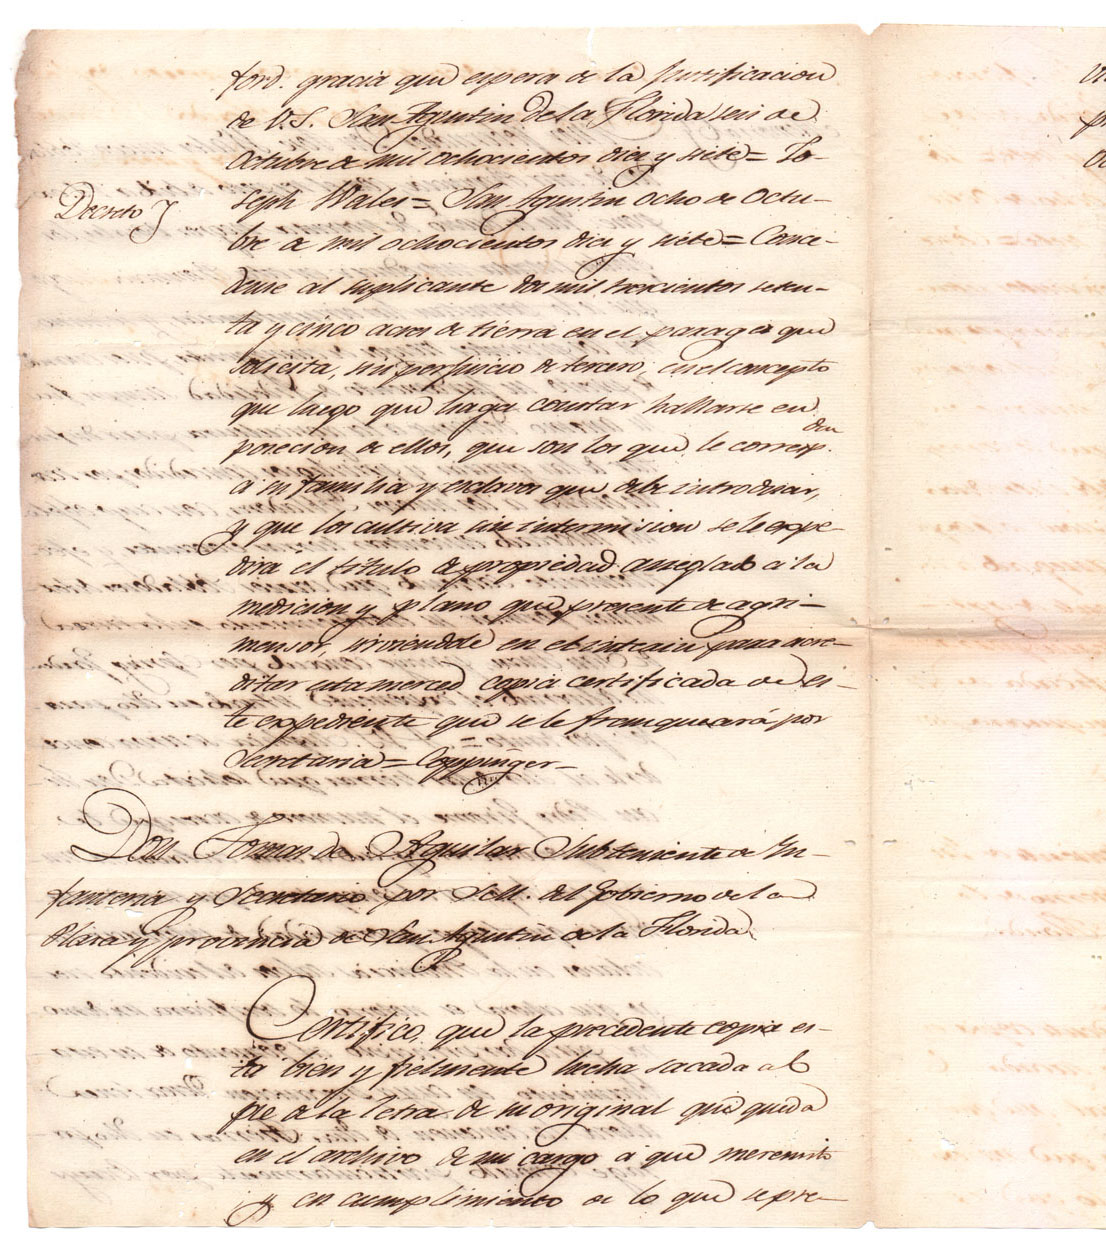 ford. gracia que espera de la justificacion
de V.S. San Agustin de la Florida seis de
Octubre de mil ochocientos diez y siete = Jo-
seph Wales = San Agustin ocho de Octu-
Decreto
bre de mil ochocientos diez y siete = Conce-
dense al suplicante dos mil trescientos seten-
ta y cinco acres de tierra en el parage que
solicita, sin perjuicio de tercero, en el concepto
que luego que haga constar hallarse en
posecion de ellos, que son los que le corresp.den
á su familia y esclavos que debe introducir,
y que los cultiva sin intermision se le expe-
dira el titulo de propiedad arreglado á la
medicion y plano que presente de agri-
mensor, sirviendole en el interin para acre-
ditar esta merced copia certificada de es-
te expediente que se le franqueará por
Secretaria = Coppinger =
Don Tomas de Aguilar Subteniente de In-
fanteria y Secretario por S.M. del Gobierno de la
Plaza y provincia de San Agustin de la Florida
Certifico, que la precedente copia es-
ta bien y fielmente hecha sacada al
pie de la letra de su original que queda
en el archivo de mi cargo á que me remito
y en cumplimiento de lo que se pre-